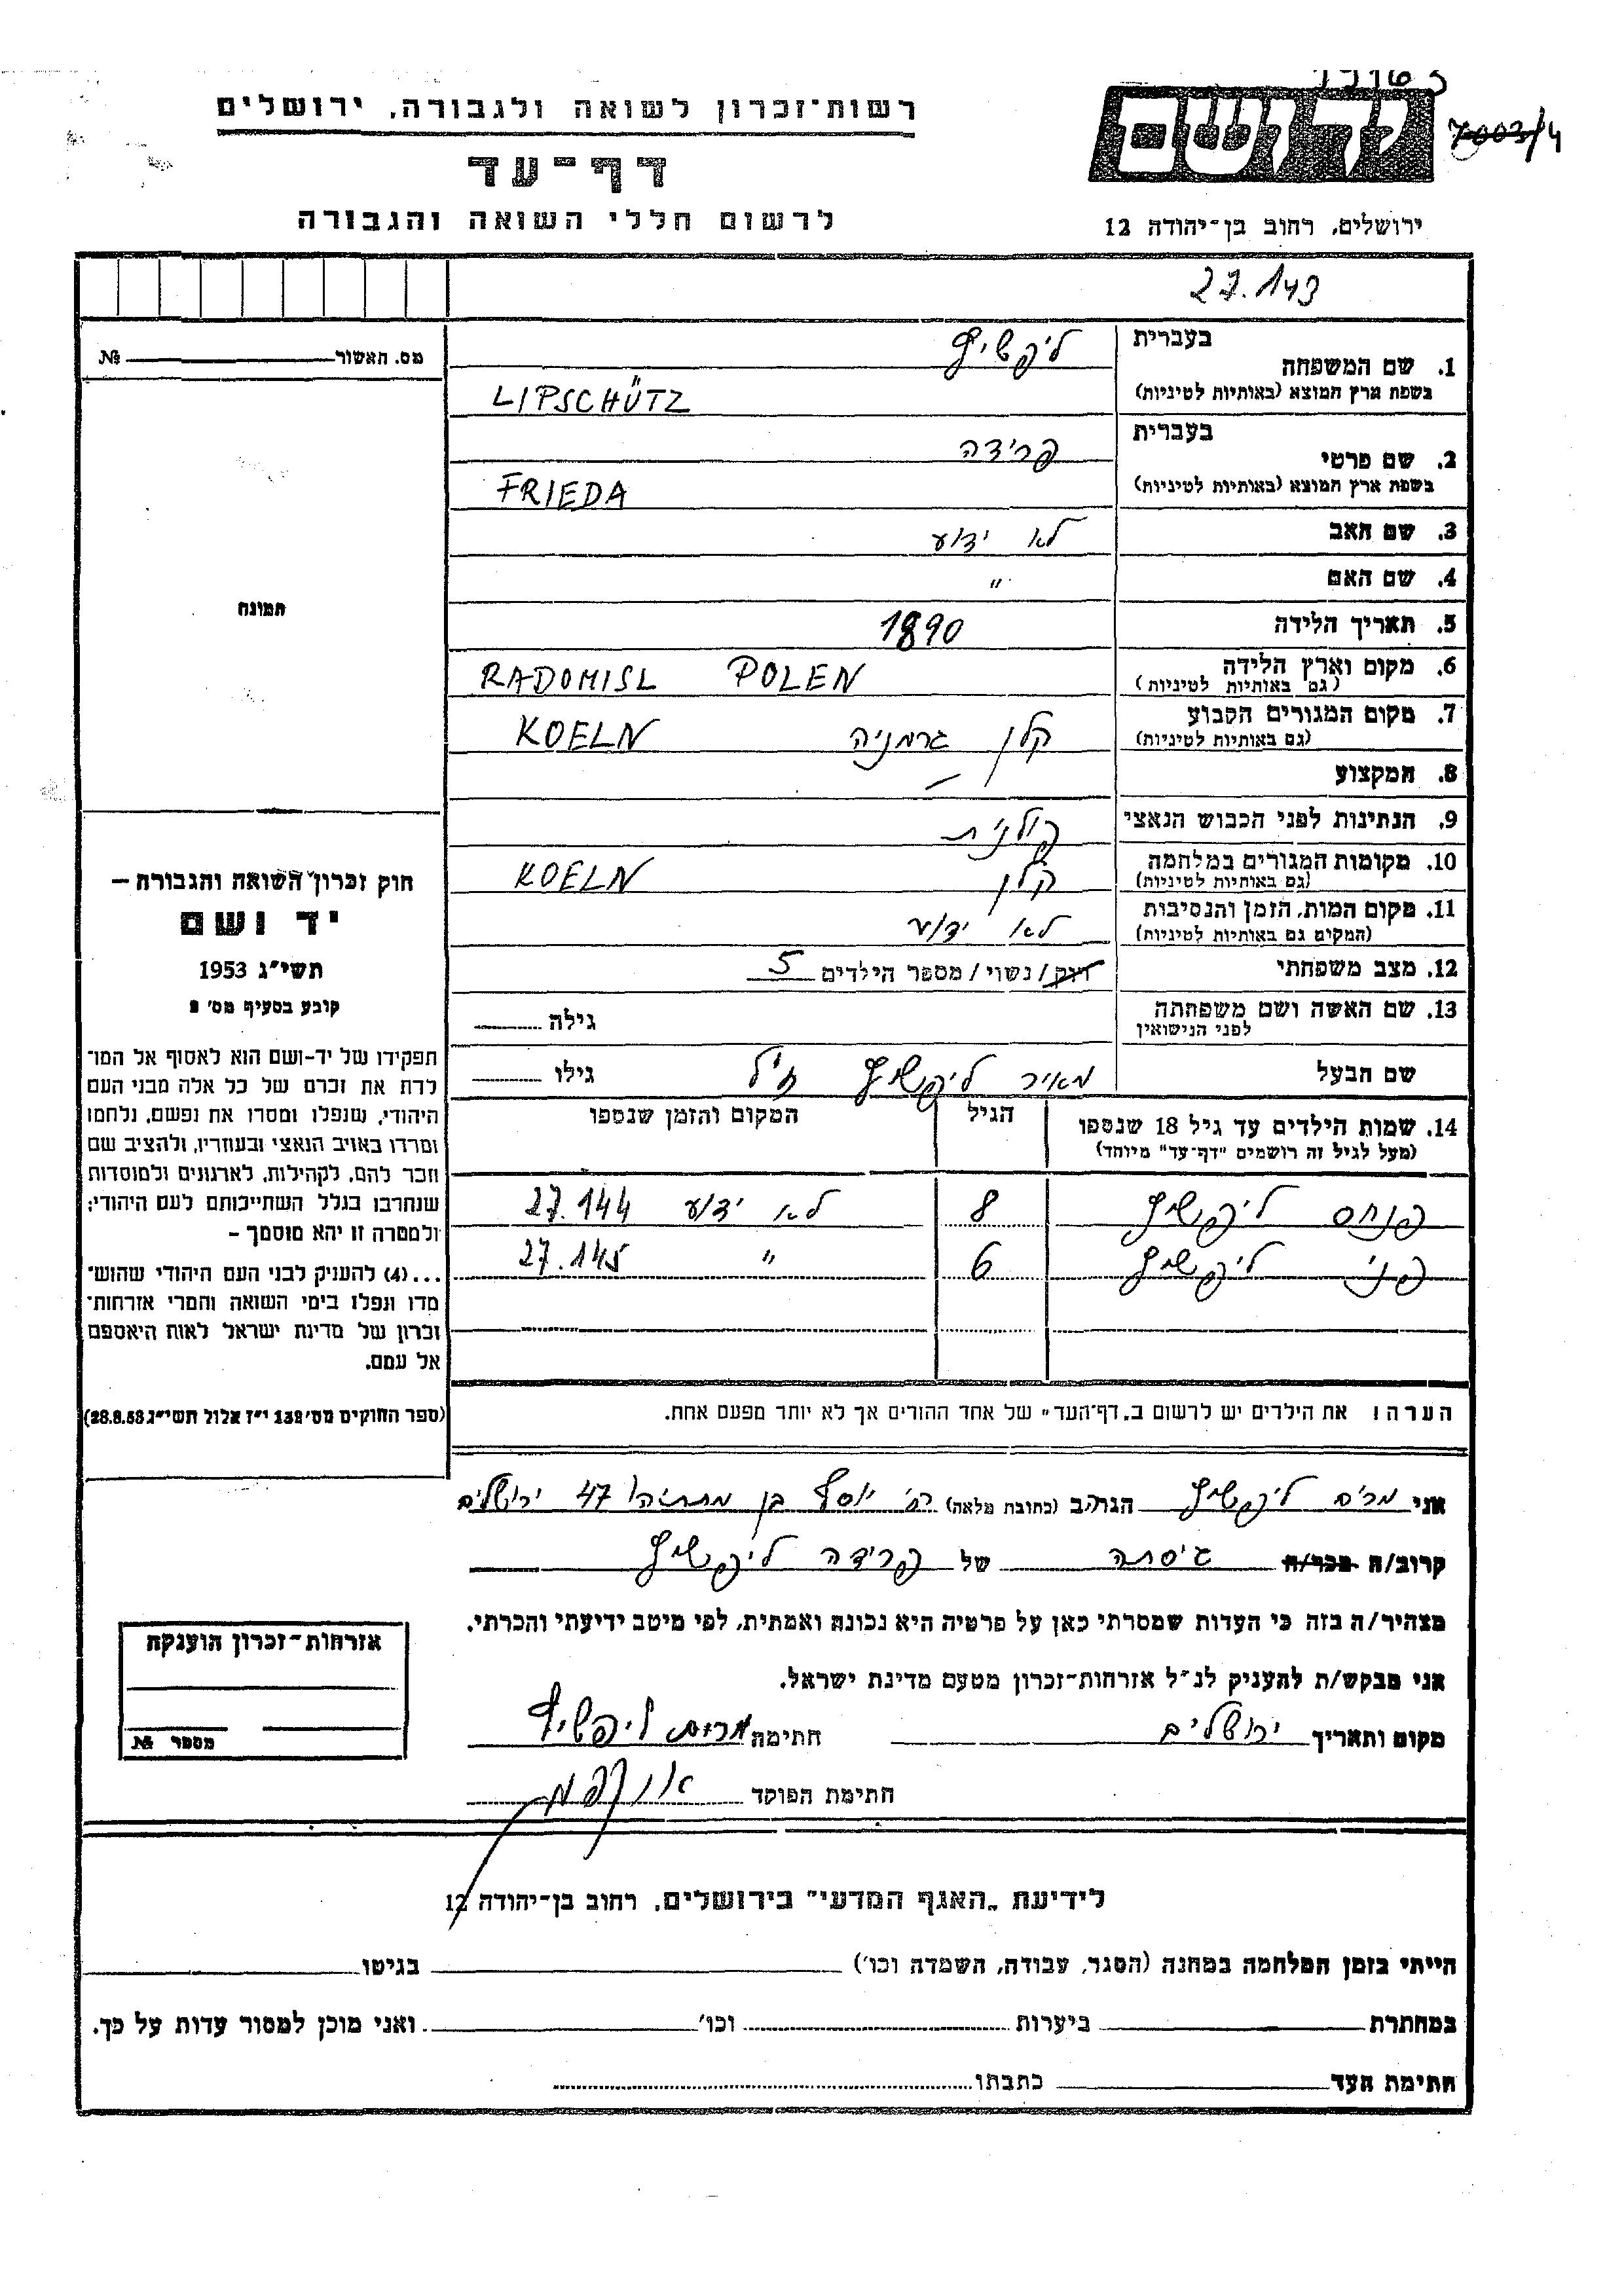 רשות־זכרון לשואה ולגבורה, ירושלים
דף־עד
לרשום חללי השואה והגבורה
7003/4
יד ושם
ירושלים, רחוב בן־יהודה 12
27.143
מס. האשור №
תמונה
1. שם המשפחה בעברית ליפשיץ
בשפת ארץ המוצא (באותיות לטיניות) LIPSCHÜTZ
2. שם פרטי בעברית פרידה
בשפת ארץ המוצא (באותיות לטיניות) FRIEDA
3. שם האב לא ידוע
4. שם האם "
5. תאריך הלידה 1890
6. מקום וארץ הלידה RADOMISL POLEN
(גם באותיות לטיניות)
7. מקום המגורים הקבוע קלן גרמניה KOELN
(גם באותיות לטיניות)
8. המקצוע —
9. הנתינות לפני הכבוש הנאצי פולנית
10. מקומות המגורים במלחמה קלן KOELN
(גם באותיות לטיניות)
11. מקום המות, הזמן והנסיבות לא ידוע
(המקום גם באותיות לטיניות)
12. מצב משפחתי רווק/נשוי/מספר הילדים 5
13. שם האשה ושם משפחתה לפני הנישואין גילה
שם הבעל מאיר ליפשיץ ז"ל גילו
14. שמות הילדים עד גיל 18 שנספו הגיל המקום והזמן שנספו
(מעל לגיל זה רושמים "דף־עד" מיוחד)
פנחס ליפשיץ 8 לא ידוע 27.144
פני ליפשיץ 6 " 27.145
הערה! את הילדים יש לרשום ב„דף־העד" של אחד ההורים אך לא יותר מפעם אחת.
חוק זכרון השואה והגבורה —
יד ושם
תשי"ג 1953
קובע בסעיף מס׳ 2
תפקידו של יד־ושם הוא לאסוף אל המו־
לדת את זכרם של כל אלה מבני העם
היהודי, שנפלו ומסרו את נפשם, נלחמו
ומרדו באויב הנאצי ובעוזריו, ולהציב שם
וזכר להם, לקהילות, לארגונים ולמוסדות
שנחרבו בגלל השתייכותם לעם היהודי;
ולמטרה זו יהא מוסמך —
...(4) להעניק לבני העם היהודי שהוש־
מדו ונפלו בימי השואה והמרי אזרחות־
זכרון של מדינת ישראל לאות היאספם
אל עמם.
(ספר החוקים מס׳ 132 י"ז אלול תשי"ג 28.8.53)
אני מרים ליפשיץ הגר/ה ב (כתובת מלאה) רח׳ יוסף בן מתתיהו 47 ירושלים
קרוב/ה מכר/ה גיסתה של פרידה ליפשיץ
מצהיר/ה בזה כי העדות שמסרתי כאן על פרטיה היא נכונה ואמתית, לפי מיטב ידיעתי והכרתי.
אני מבקש/ת להעניק לנ"ל אזרחות־זכרון מטעם מדינת ישראל.
מקום ותאריך ירושלים חתימה מרים ליפשיץ
חתימת הפוקד
אזרחות־זכרון הוענקה
מספר №
לידיעת „האגף המדעי" בירושלים, רחוב בן־יהודה 12
הייתי בזמן המלחמה במחנה (הסגר, עבודה, השמדה וכו׳) בגיטו
במחתרת ביערות וכו׳ ואני מוכן למסור עדות על כך.
חתימת העד כתבתו